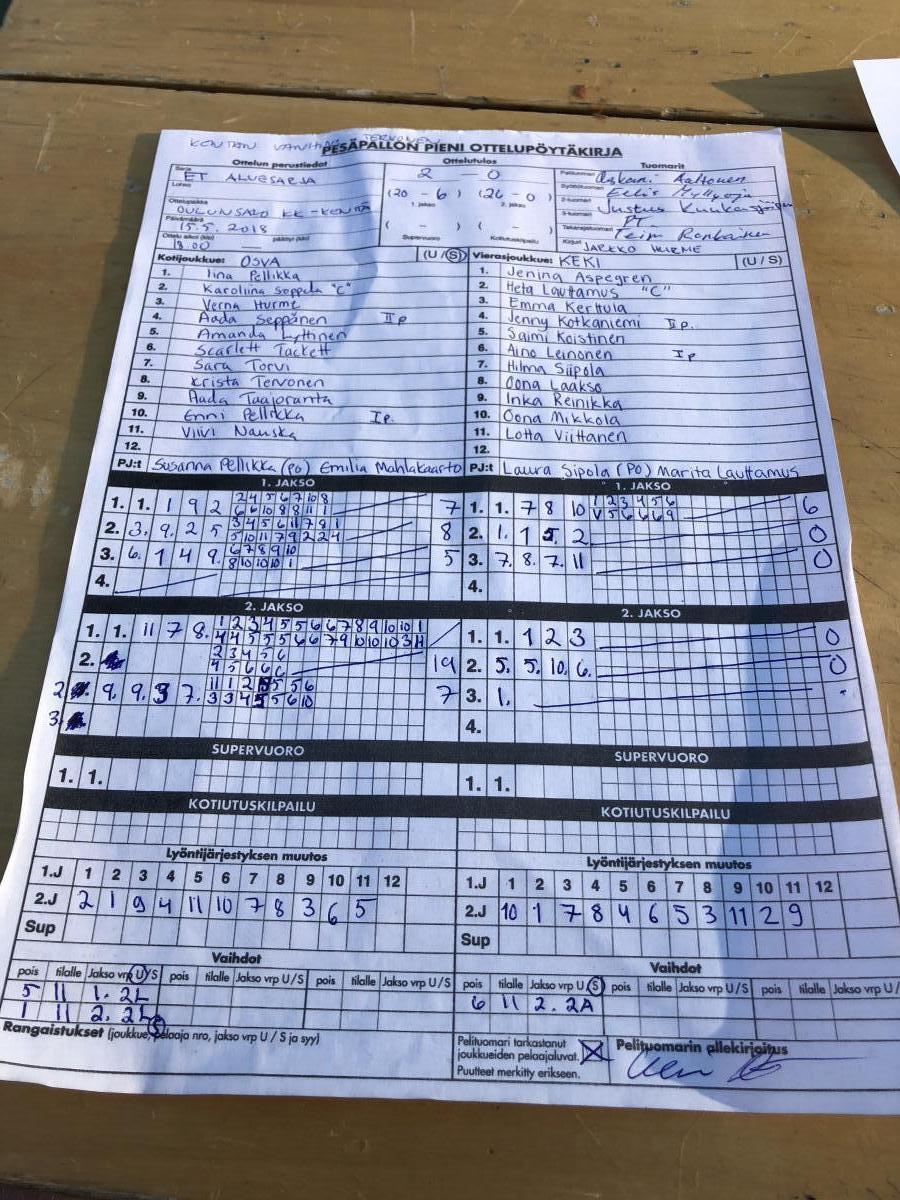 KENTÄN VANHIN TERVONEN
PESÄPALLON PIENI OTTELUPÖYTÄKIRJA
Ottelun perustiedot Ottelutulos Tuomarit
Sarja ET ALUESARJA 2 - 0 Pelituomari Aaltonen
Lohko (20 - 6) (26 - 0) Syöttötuomari Eelis
Ottelupaikka OULUNSALO KK-KENTTÄ 1. jakso 2. jakso 2-tuomari Justus
Päivämäärä 15.5.2018 ( - ) ( - ) 3-tuomari
Ottelu alkoi (klo) 18.00 päättyi (klo) Supervuoro Kotiutuskilpailu Takarajatuomari
Kirjuri JARKKO HURME
Kotijoukkue: OSVA (U / S) Vierasjoukkue: KEKI (U / S)
1. Iina Pellikka 1. Jenina Aspegren
2. Karoliina Seppela "C" 2. Heta Lauttamus "C"
3. Verna Hurme 3. Emma Kerttula
4. Aada Seppänen II p 4. Jenny Kotkaniemi II p.
5. Amanda Lyttinen 5. Saimi Koistinen
6. Scarlett Tackett 6. Aino Leinonen I p
7. Sara Torvi 7. Hilma Siipola
8. Krista Tervonen 8. Oona Laakso
9. Aada Taajoranta 9. Inka Reinikka
10. Enni Pellikka I p. 10. Oona Mikkola
11. Viivi Nauska 11. Lotta Viittanen
12. 12.
PJ:t Susanna Pellikka (PO) Emilia Mahlakaarto PJ:t Laura Sipola (PO) Marita Lauttamus
1. JAKSO 1. JAKSO
1. 1. 1 9 2 2 4 5 6 7 10 8 7 1. 1. 7 8 10 1 2 3 4 5 6 6
6 6 10 8 8 11 1 V 5 6 6 6 9
2. 3. 9. 2 5 3 4 5 6 11 7 9 1 8 2. 1. 1 5. 2. 0
5 10 11 7 9 2 2 4
3. 6. 1 4 9. 6 7 8 9 10 5 3. 7. 8. 7. 11 0
8 10 10 10 1
4. 4.
2. JAKSO 2. JAKSO
1. 1. 11 7 8. 1 2 3 4 5 5 6 6 7 8 9 10 10 1 1. 1. 1 2 3 0
4 4 5 5 5 6 6 7 9 10 10 10 3 H
2. 2 3 4 5 6 19 2. 5. 5. 10. 6. 0
4 5 6 6 C
2 9. 9. 3 7. 11 1 2 5 5 5 6 7 3. 1.
3 3 4 5 5 6 10
3. 4.
SUPERVUORO SUPERVUORO
1. 1. 1. 1.
KOTIUTUSKILPAILU KOTIUTUSKILPAILU
Lyöntijärjestyksen muutos Lyöntijärjestyksen muutos
1.J 1 2 3 4 5 6 7 8 9 10 11 12 1.J 1 2 3 4 5 6 7 8 9 10 11 12
2.J 2 1 9 4 11 10 7 8 3 6 5 2.J 10 1 7 8 4 6 5 3 11 2 9
Sup Sup
Vaihdot Vaihdot
pois tilalle Jakso vrp U/S pois tilalle Jakso vrp U/S pois tilalle Jakso vrp U / S pois tilalle Jakso vrp U/S pois tilalle Jakso vrp U/S pois tilalle Jakso vrp U/
5 11 1. 2L 6 11 2. 2A
1 11 2. 2L
Rangaistukset (joukkue, pelaaja nro, jakso vrp U / S ja syy)
Pelituomari tarkastanut joukkueiden pelaajaluvat. X
Puutteet merkitty erikseen.
Pelituomarin allekirjoitus